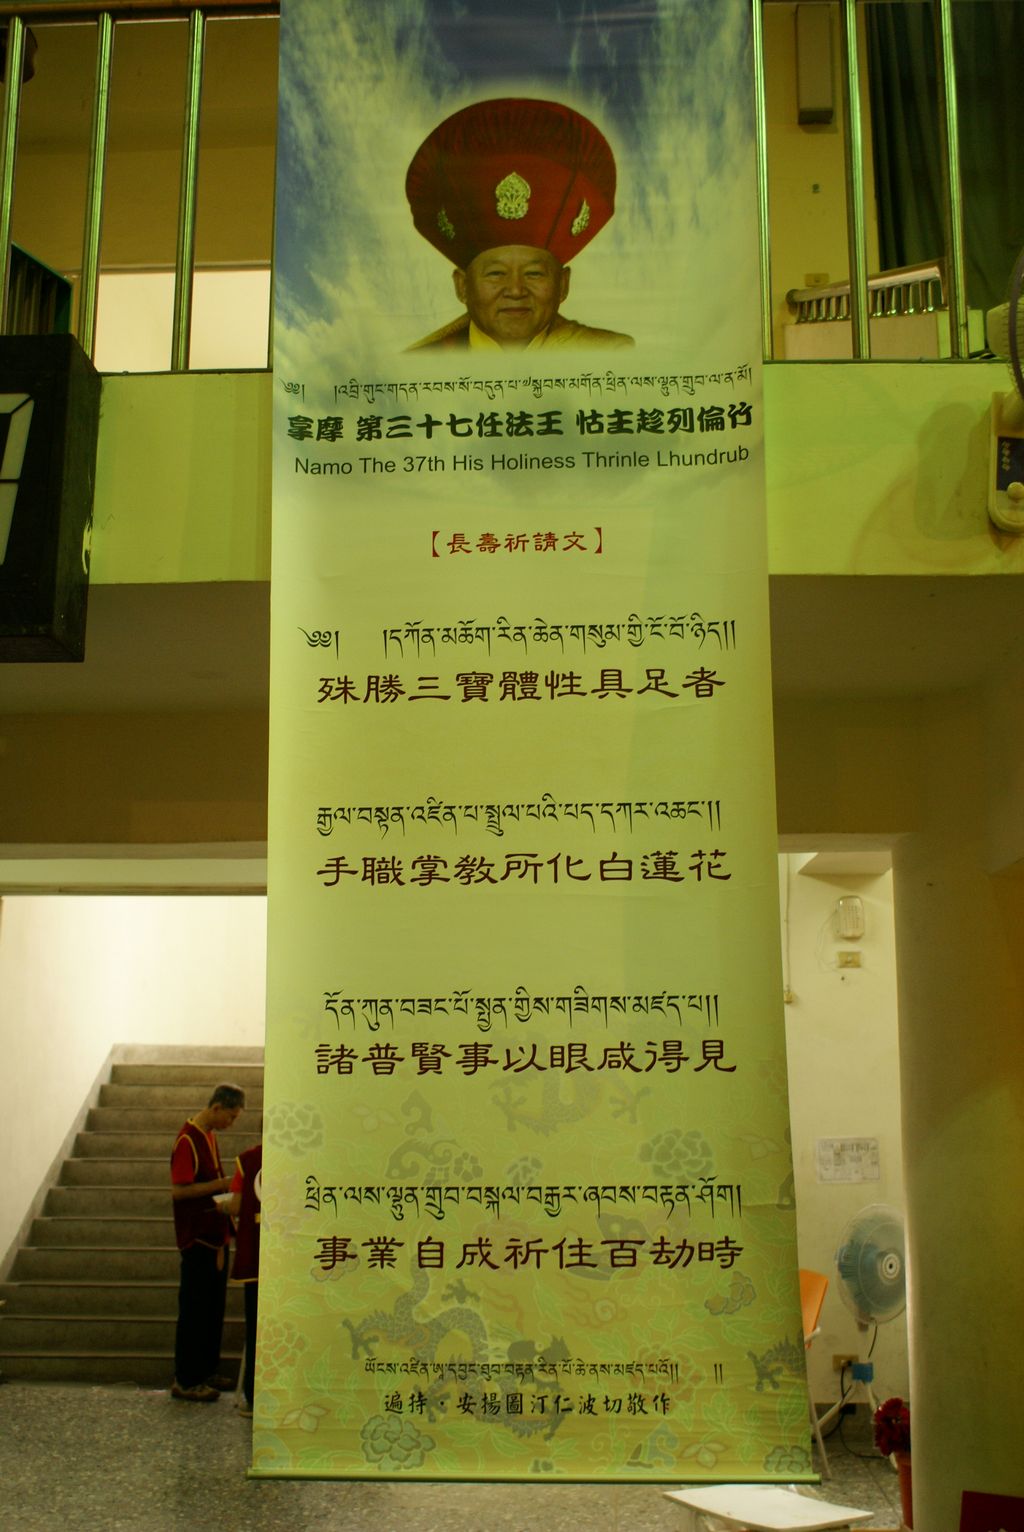 ༄༅། །འབྲི་གུང་གདན་རབས་སོ་བདུན་པ་༧སྐྱབས་མགོན་ཕྲིན་ལས་ལྷུན་གྲུབ་ལ་ན་མོ།
拿摩 第三十七任法王 怙主趁列倫竹
Namo The 37th His Holiness Thrinle Lhundrub
【長壽祈請文】
༄༅། །དཀོན་མཆོག་རིན་ཆེན་གསུམ་གྱི་ངོ་བོ་ཉིད།།
殊勝三寶體性具足者
རྒྱལ་བསྟན་འཛིན་པ་སྤྲུལ་པའི་པད་དཀར་འཆང་།།
手職掌教所化白蓮花
དོན་ཀུན་བཟང་པོ་སྤྱན་གྱིས་གཟིགས་མཛད་པ།།
諸普賢事以眼咸得見
ཕྲིན་ལས་ལྷུན་གྲུབ་བསྐལ་བརྒྱར་ཞབས་བརྟན་ཤོག།
事業自成祈住百劫時
ཡོངས་འཛིན་ཨཱ་དབྱང་ཐུབ་བརྟན་རིན་པོ་ཆེ་ནས་མཛད་པའོ།། །།
遍持·安揚圖汀仁波切敬作